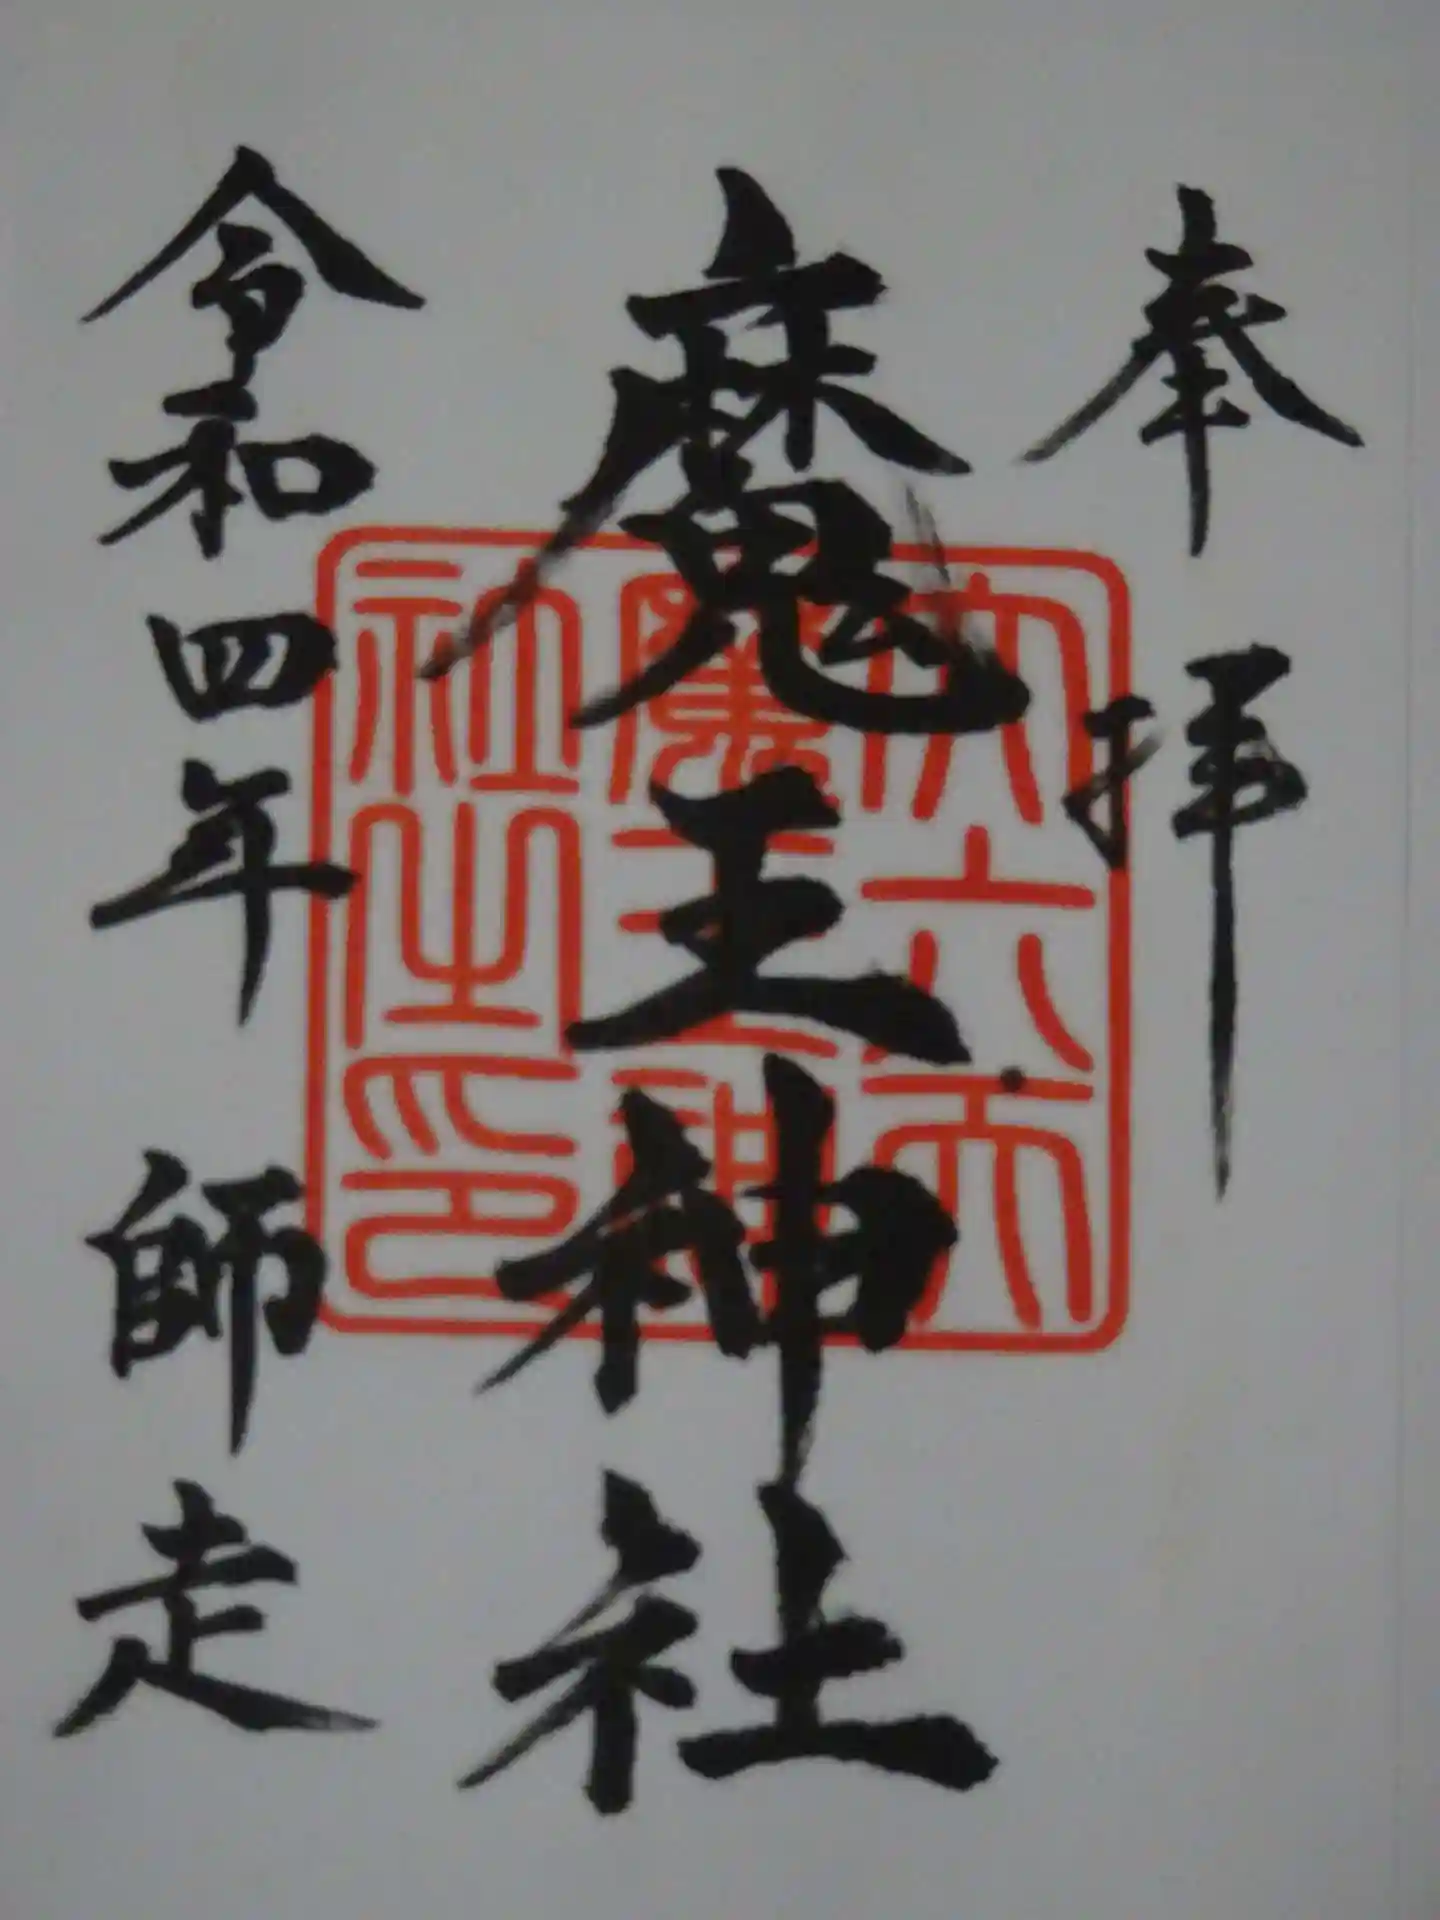 奉拝
魔王神社
令和四年 師走
六天
魔王神
社之印